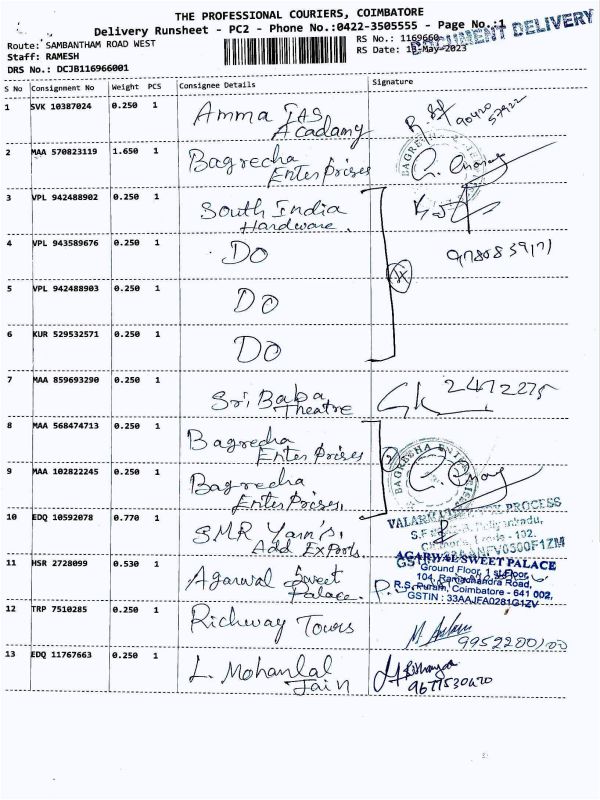 THE PROFESSIONAL COURIERS, COIMBATORE
Delivery Runsheet - PC2 - Phone No.:0422-3505555 - Page No.:1
DOCUMENT DELIVERY
Route: SAMBANTHAM ROAD WEST
RS No.: 1169660
Staff: RAMESH
RS Date: 13-May-2023
DRS No.: DCJB116966001
S No Consignment No Weight PCS Consignee Details Signature
1 SVK 10387024 0.250 1 Amma IAS
Acadamy
90420
57922
2 MAA 570823119 1.650 1 Bagrecha
Enterprises
3 VPL 942488902 0.250 1 South India
Hardware.
4 VPL 943589676 0.250 1 DO
4
5 VPL 942488903 0.250 1 DO
6 KUR 529532571 0.250 1 DO
7 MAA 859693290 0.250 1 Sri Baba
Theatre
2472275
8 MAA 568474713 0.250 1 Bagrecha
Enterprises
2
9 MAA 102822245 0.250 1 Bagrecha
Enterprises,
10 EDQ 10592078 0.770 1 SMR Yarn's,
Add Exports.
PROCESS
11 HSR 2728099 0.530 1 Agarwal Sweet
Palace.
AGARWAL SWEET PALACE
Ground Floor, 1st Floor,
104, Ramachandra Road,
R.S. Puram, Coimbatore - 641 002,
GSTIN : 33AAJFA0281G1ZV
12 TRP 7510285 0.250 1 Richway Tours
9952200100
13 EDQ 11767663 0.250 1 L. Mohanlal
Jain
9677530420